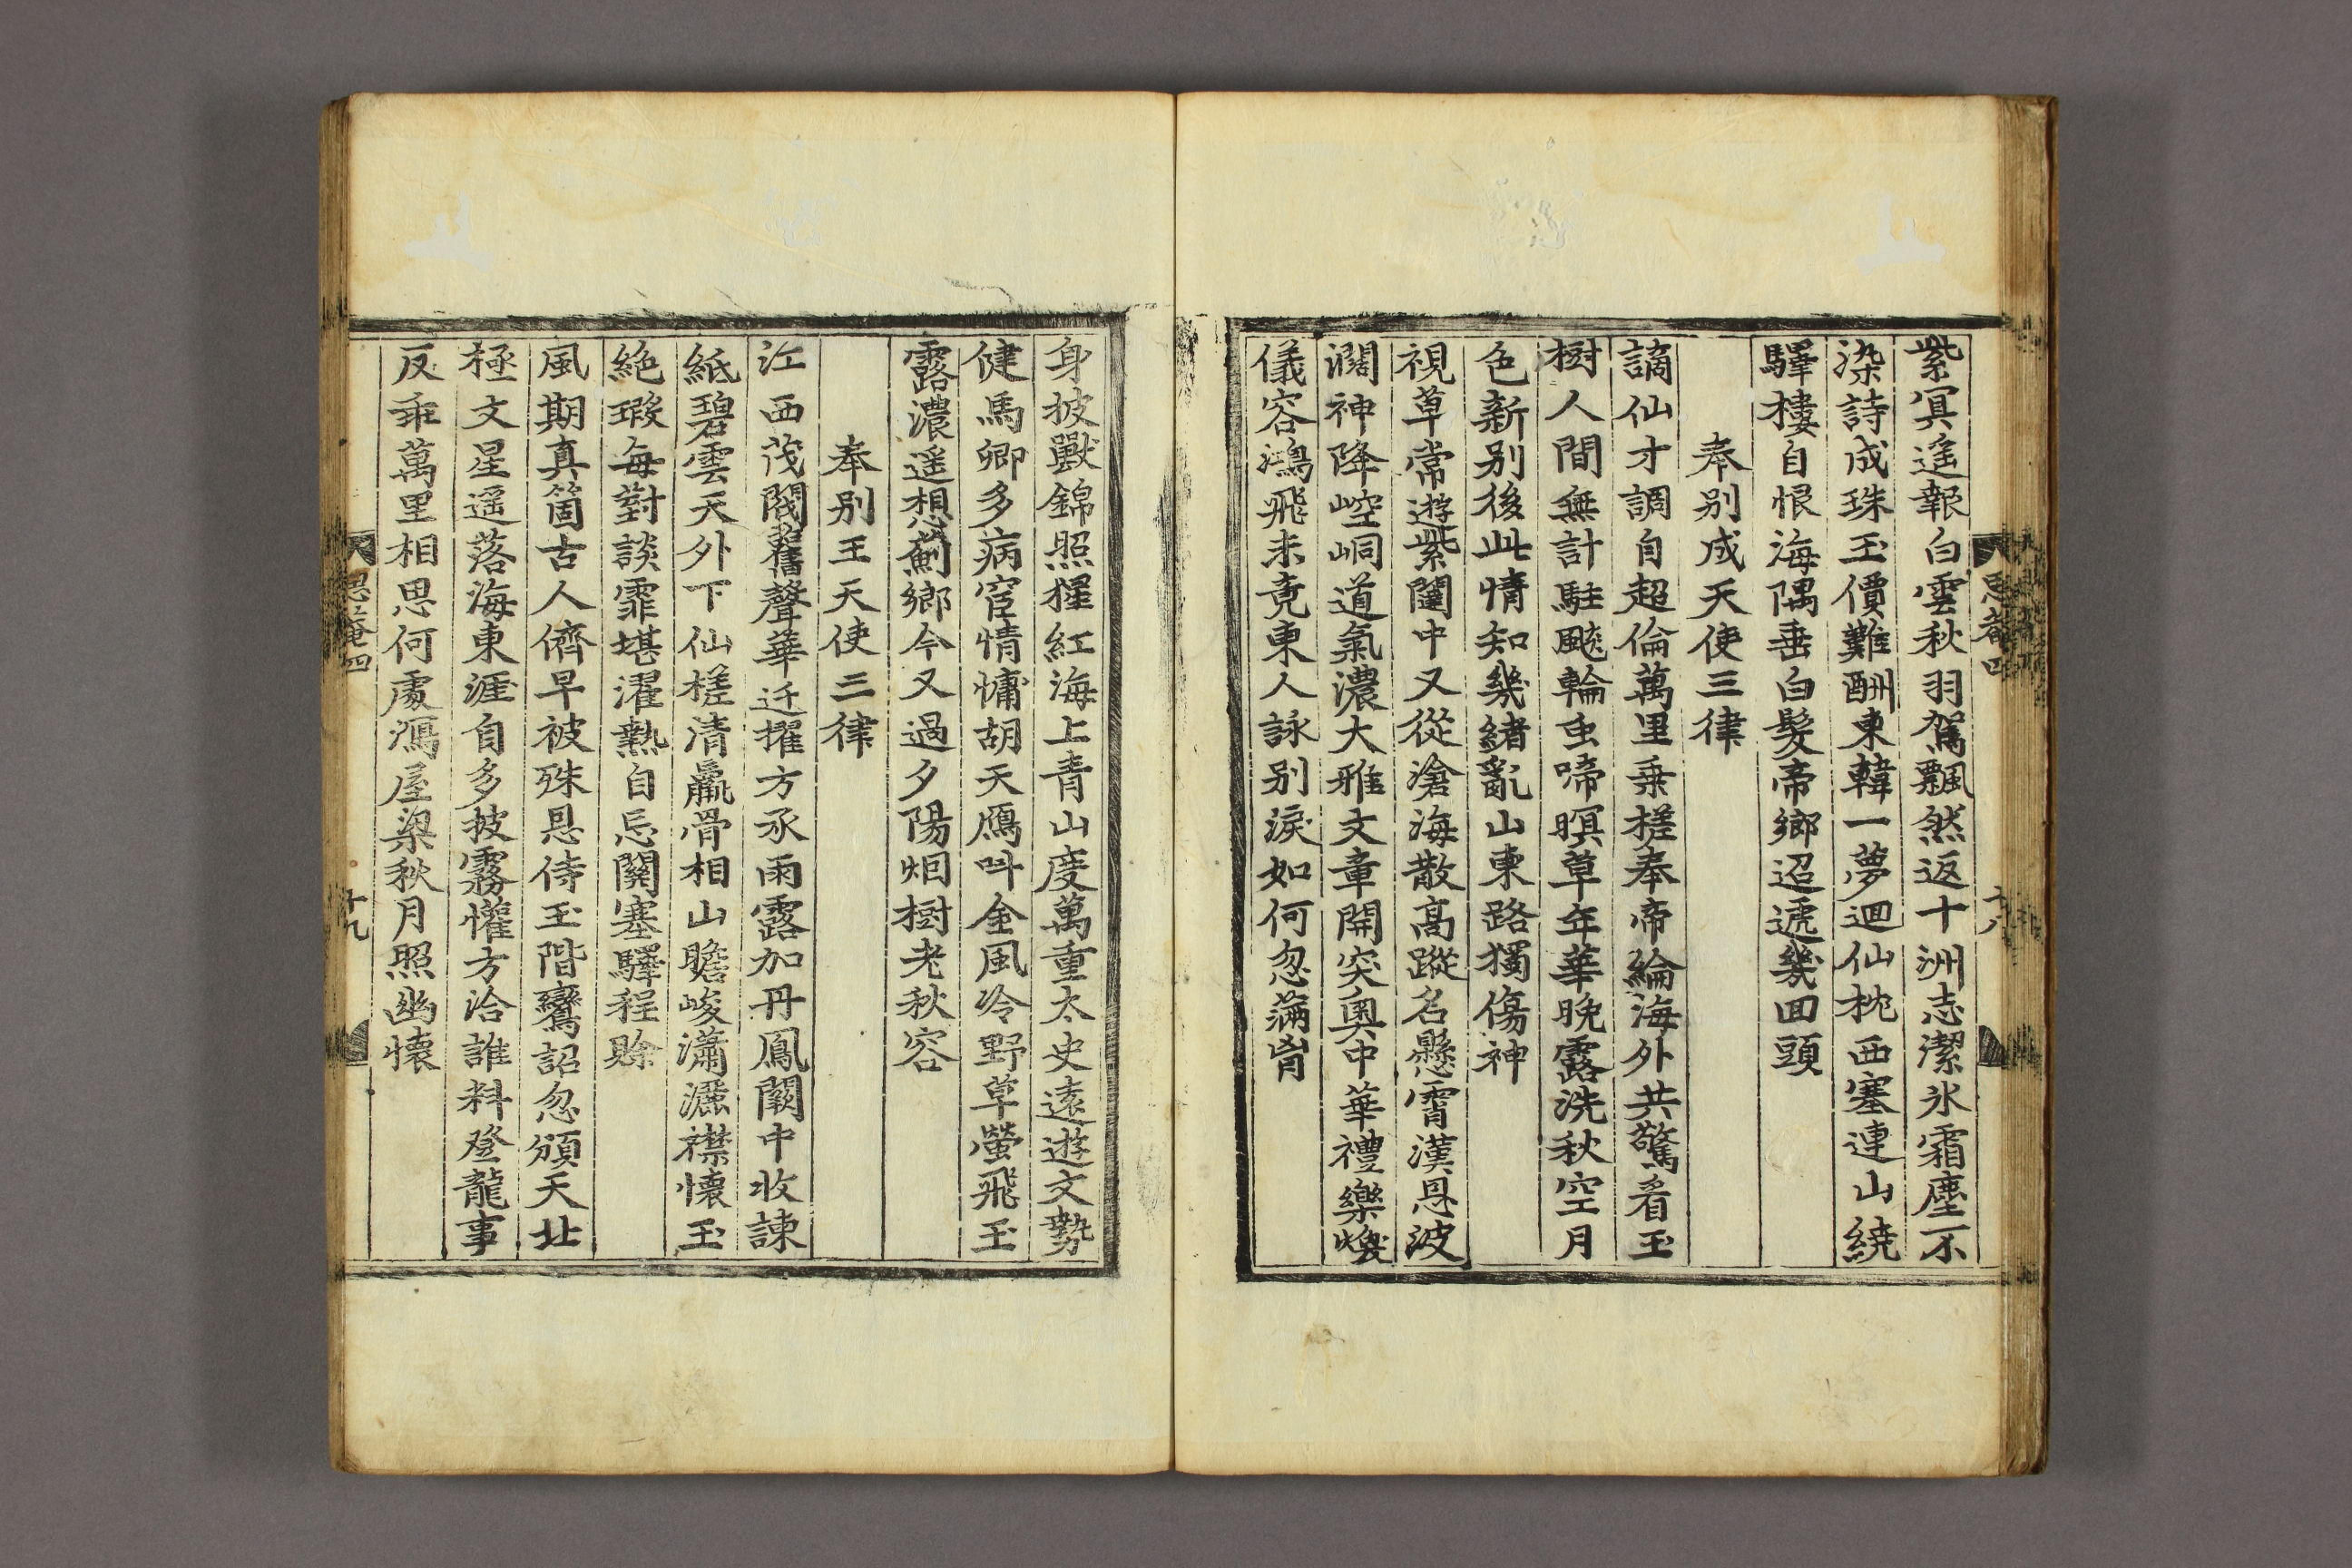 紫冥遙報白雲秋羽駕飄然返十洲志潔氷霜塵不
染詩成珠玉價難酬東韓一夢迴仙枕西塞連山繞
驛樓自恨海隅垂白髮帝鄉迢遞幾回頭
奉別成天使三律
謫仙才調自超倫萬里乗槎奉帝綸海外共驚看玉
樹人間無計駐飈輪虫啼暝草年華晚露洗秋空月
色新別後此情知幾緖亂山東路獨傷神
視草常遊紫闥中又從滄海散高蹤名懸霄漢恩波
濶神降崆峒道氣濃大雅文章開突奧中華禮樂煥
儀容鴻飛未竟東人詠別淚如何忽滿胷
思菴四
十八
身披獸錦照猩紅海上青山度萬重太史遠遊文勢
健馬卿多病宦情慵胡天鴈叫金風冷野草螢飛玉
露濃遥想薊鄉今又過夕陽烟樹老秋容
奉別王天使二律
江西茂閥舊聲華迁擢方承雨露加丹鳳闕中收諫
紙碧雲天外下仙槎清羸骨相山瞻峻瀟灑襟懷玉
絶瑕每對談霏堪濯熱自忘關塞驛程賖
風期真箇古人儕早被殊恩侍玉階鸞詔忽頒天北
極文星遥落海東涯自多披霧懽方洽誰料登龍事
反乖萬里相思何處瀉屋梁秋月照幽懷
思菴四
十九